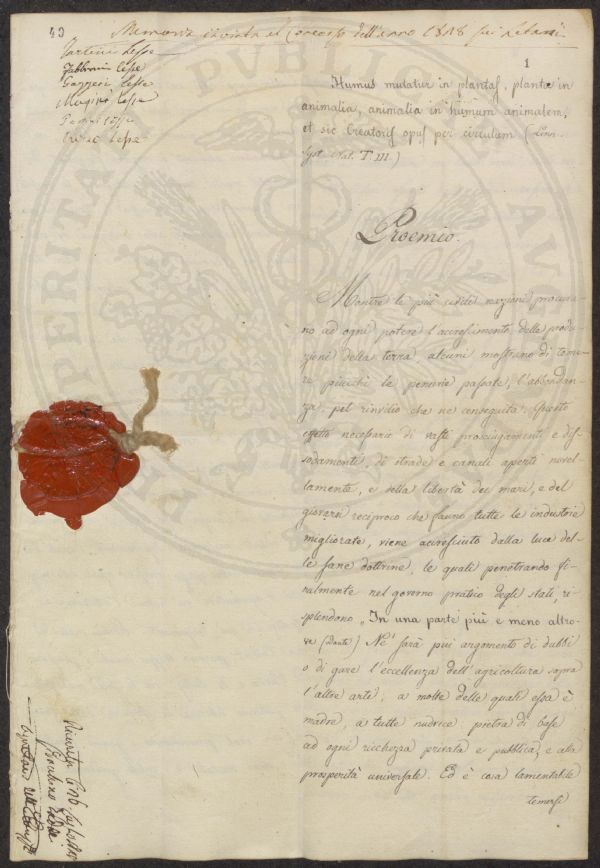 49
Memoria inviata al Concorso dell'anno 1818 sui Letami
Tartini lesse
Fabbroni lesse
Gazzeri lesse
lesse
lesse
lesse
1
Humus mutatur in plantas, plantæ in
animalia, animalia in humum animalem,
et sic Creatoris opus per circulum (Linn.
Syst. Nat. T III)
Proemio.
Mentre le più civili nazioni procura-
no ad ogni potere l'accrescimento delle produ-
zioni della terra alcuni mostrano di teme-
re piucchè le penurie passate, l'abbondan-
za pel rinvilio che ne conseguita. Questo
effetto necessario di vasti prosciugamenti e dis-
sodamenti, di strade e canali aperti novel-
lamente, e della libertà dei mari, e del
giovarsi reciproco che fanno tutte le industrie
migliorate, viene accresciuto dalla luce del-
le sane dottrine, le quali penetrando fi-
nalmente nel governo pratico degli stati, ri-
splendono „In una parte più e meno altro-
ve (Dante) Nè sarà piu argomento di dubbi
o di gare l'eccellenza dell'agricoltura sopra
l'altre arti, a molte delle quali essa è
madre, a tutte nudrice, pietra di base
ad ogni ricchezza privata e pubblica, e alla
prosperità universale. Ed è cosa lamentabile
temersi
PUBLICO
PROSPERITATI AUG